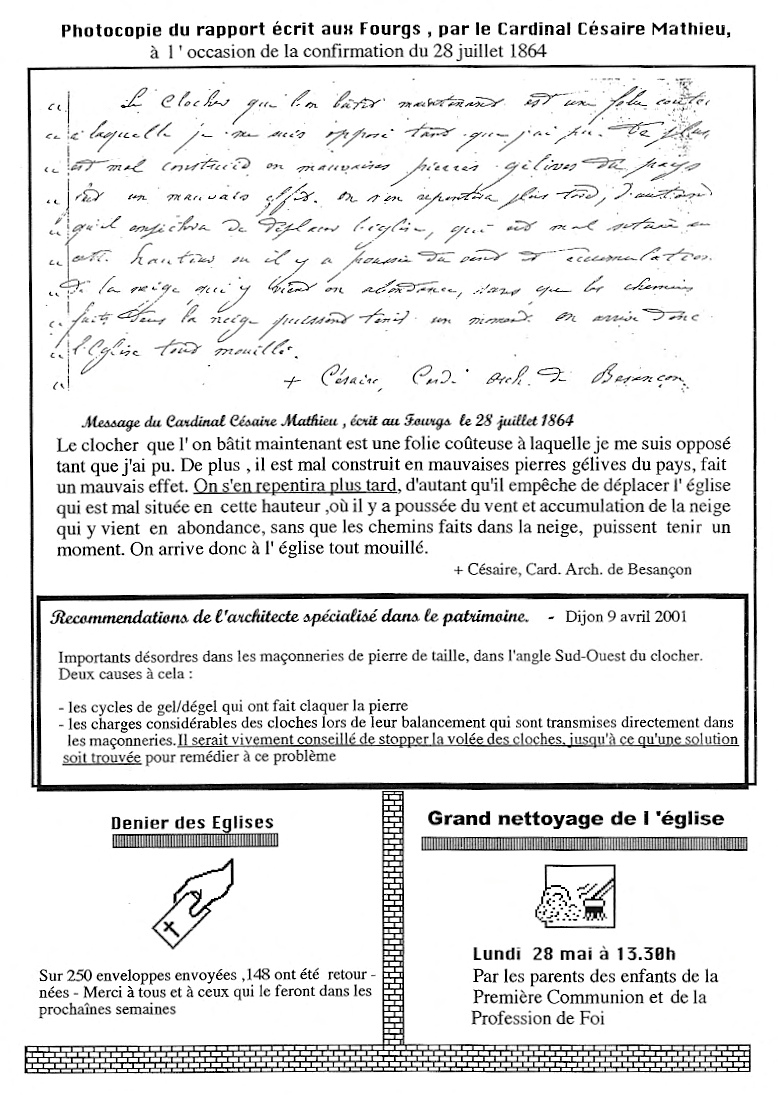 Photocopie du rapport écrit aux Fourgs , par le Cardinal Césaire Mathieu,
à l ' occasion de la confirmation du 28 juillet 1864
" Le clocher que l'on bâtit maintenant est une folie coûteu
" à laquelle je me suis opposé tant que j'ai pu. De plus
" est mal construit en mauvaises pierres gélives du pays
" fait un mauvais effet. On s'en repentira plus tard, d'autant
" qu'il empêchera de déplacer l'église, qui est mal située en
" cette hauteur où il y a poussée du vent et accumulation
" de la neige qui y vient en abondance, sans que les chemins
" faits dans la neige puissent tenir un moment. On arrive donc
" à l'Eglise tout mouillé.
+ Césaire, Card. Arch. de Besançon.
Message du Cardinal Césaire Mathieu , écrit au Fourgs le 28 juillet 1864
Le clocher que l' on bâtit maintenant est une folie coûteuse à laquelle je me suis opposé
tant que j'ai pu. De plus , il est mal construit en mauvaises pierres gélives du pays, fait
un mauvais effet. On s'en repentira plus tard, d'autant qu'il empêche de déplacer l' église
qui est mal située en cette hauteur ,où il y a poussée du vent et accumulation de la neige
qui y vient en abondance, sans que les chemins faits dans la neige, puissent tenir un
moment. On arrive donc à l' église tout mouillé.
+ Césaire, Card. Arch. de Besançon
Recommendations de l'architecte spécialisé dans le patrimoine. - Dijon 9 avril 2001
Importants désordres dans les maçonneries de pierre de taille, dans l'angle Sud-Ouest du clocher.
Deux causes à cela :
- les cycles de gel/dégel qui ont fait claquer la pierre
- les charges considérables des cloches lors de leur balancement qui sont transmises directement dans
les maçonneries.Il serait vivement conseillé de stopper la volée des cloches, jusqu'à ce qu'une solution
soit trouvée pour remédier à ce problème
Denier des Eglises
Sur 250 enveloppes envoyées ,148 ont été retour -
nées - Merci à tous et à ceux qui le feront dans les
prochaînes semaines
Grand nettoyage de l 'église
Lundi 28 mai à 13.30h
Par les parents des enfants de la
Première Communion et de la
Profession de Foi